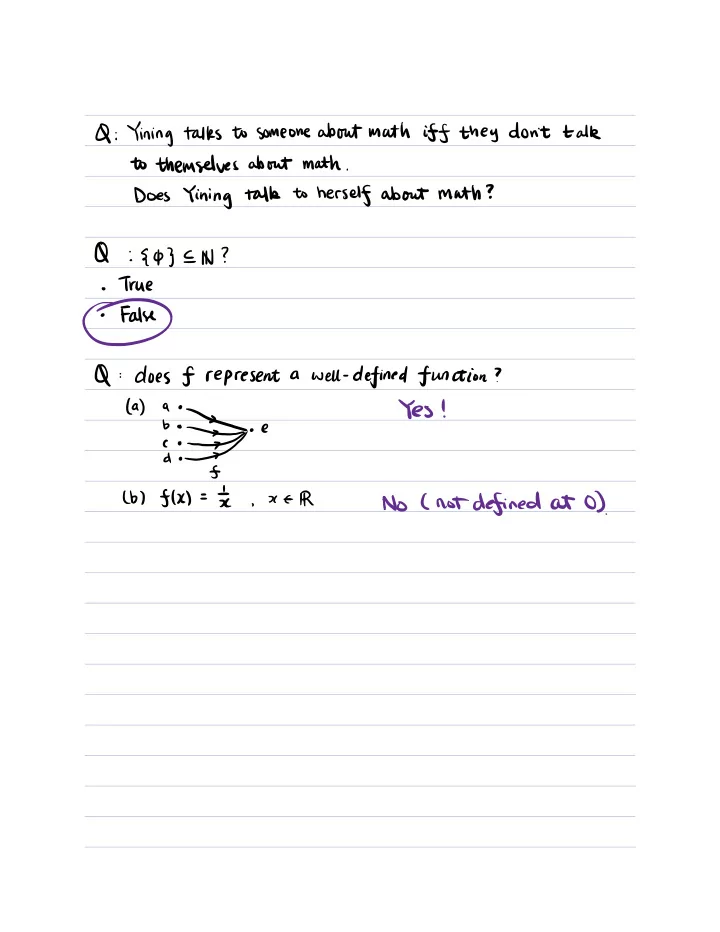 Q: Yining talks to someone about math iff they don't talk
to themselves about math.
Does Yining talk to herself about math?
Q : {φ} ⊆ ℕ ?
• True
• False
Q: does f represent a well-defined function?
(a) a • Yes!
b • • e
c •
d •
f
(b) f(x) = 1/x , x ∈ ℝ No (not defined at 0).